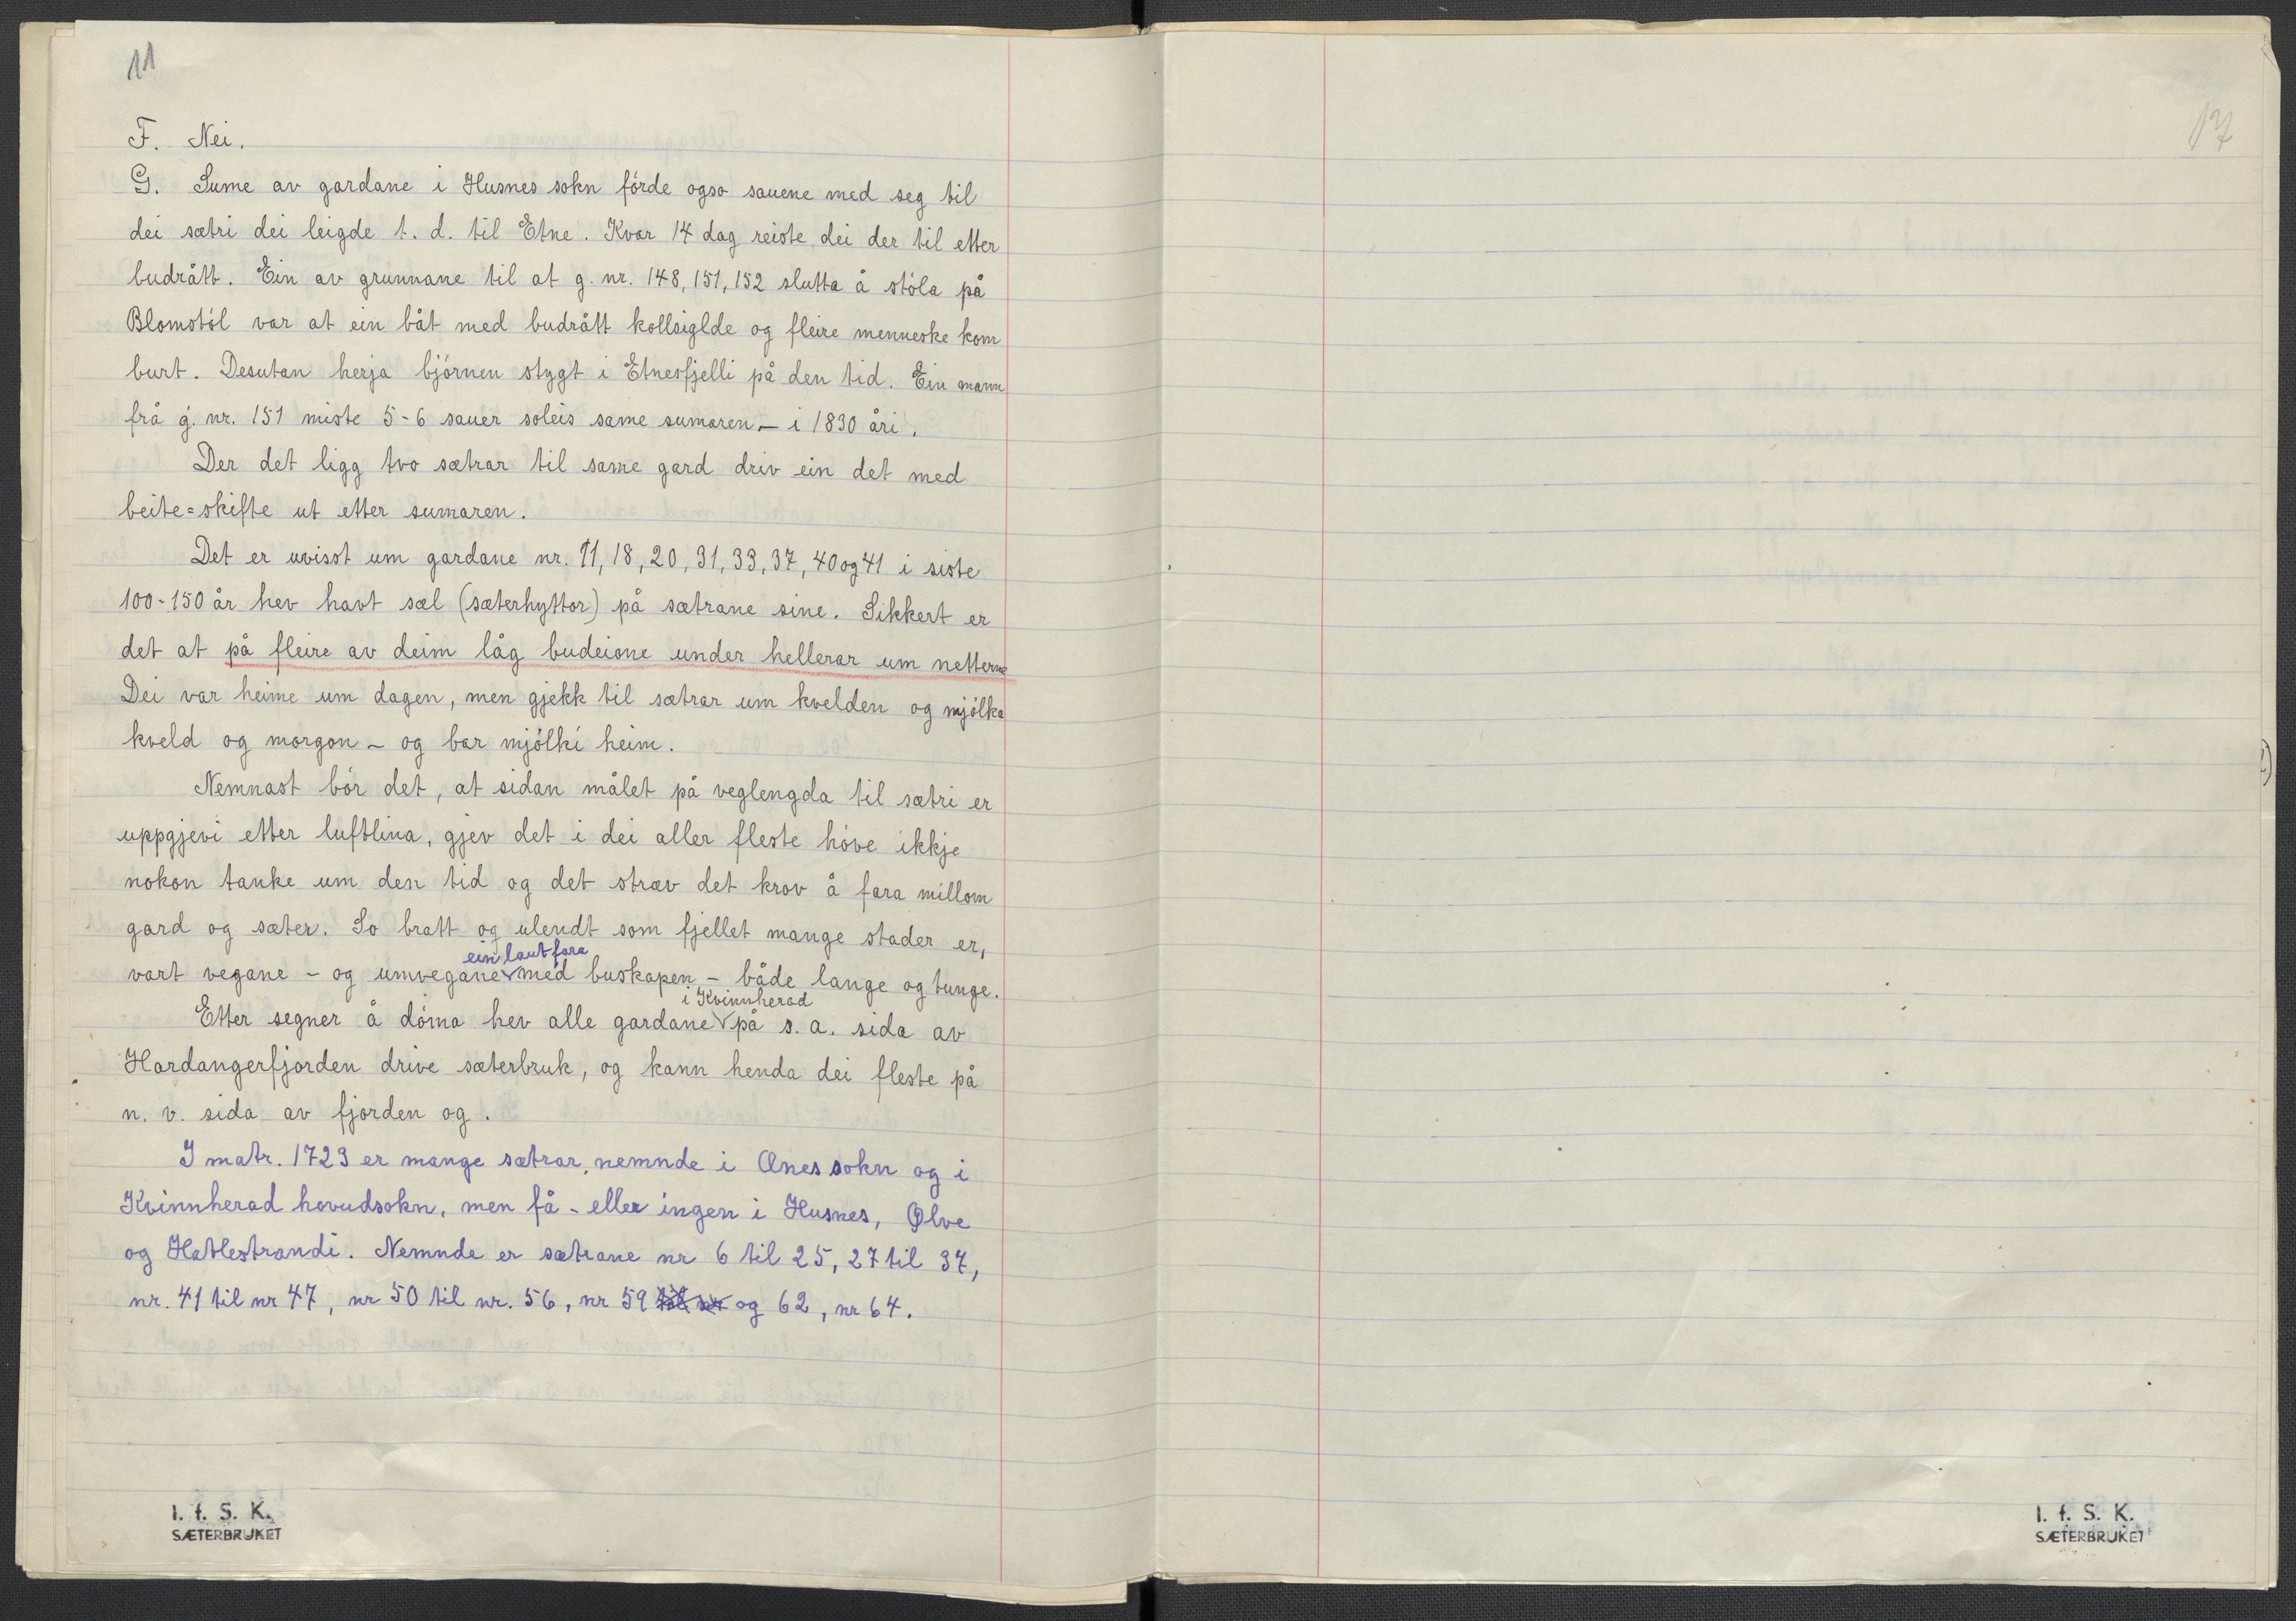 11
F. Nei.
G. Sume av gardane i Husnes sokn förde ogso sauene med seg til
dei sætri dei leigde t. d. til Etne. Kvar 14 dag reiste dei der til etter
budrått. Ein av grunnane til at g. nr. 148, 151, 152 slutta å stöla på
Blomstöl var at ein båt med budrått kollsiglde og fleire menneske kom
burt. Desutan herja björnen stygt i Etnesfjelli på den tid. Ein mann
frå g. nr. 151 miste 5-6 sauer soleis same sumaren – i 1830 åri.
Der det ligg tvo sætrar til same gard driv ein det med
beite=skifte ut etter sumaren.
Det er uvisst um gardane nr. 11, 18, 20, 31, 33, 37, 40 og 41 i siste
100-150 år hev havt sæl (sæterhyttor) på sætrane sine. Sikkert er
det at på fleire av deim låg budeione under hellerar um netterne
Dei var heime um dagen, men gjekk til sætrar um kvelden og mjölka
kveld og morgon – og bar mjölki heim.
Nemnast bör det, at sidan målet på veglengda til sætri er
uppgjevi etter luftlina, gjev det i dei aller fleste höve ikkje
nokon tanke um den tid og det stræv det krov å fara millom
gard og sæter. So bratt og ulendt som fjellet mange stader er,
ein laut fara
vart vegane – og umvegane med buskapen – både lange og tunge.
i Kvinnherad
Etter segner å döma hev alle gardane på s. a. sida av
Hardangerfjorden drive sæterbruk, og kann henda dei fleste på
n. v. sida av fjorden og.
I matr. 1723 er mange sætrar nemnde i Ænes sokn og i
Kvinnherad hovudsokn, men få – eller ingen i Husnes, Ølve
og Hatlestrandi. Nemnde er sætrane nr 6 til 25, 27 til 37,
nr. 41 til nr 47, nr 50 til nr. 56, nr 59 og 62, nr 64.
I. f. S. K.
SÆTERBRUKET
I. f. S. K.
SÆTERBRUKET